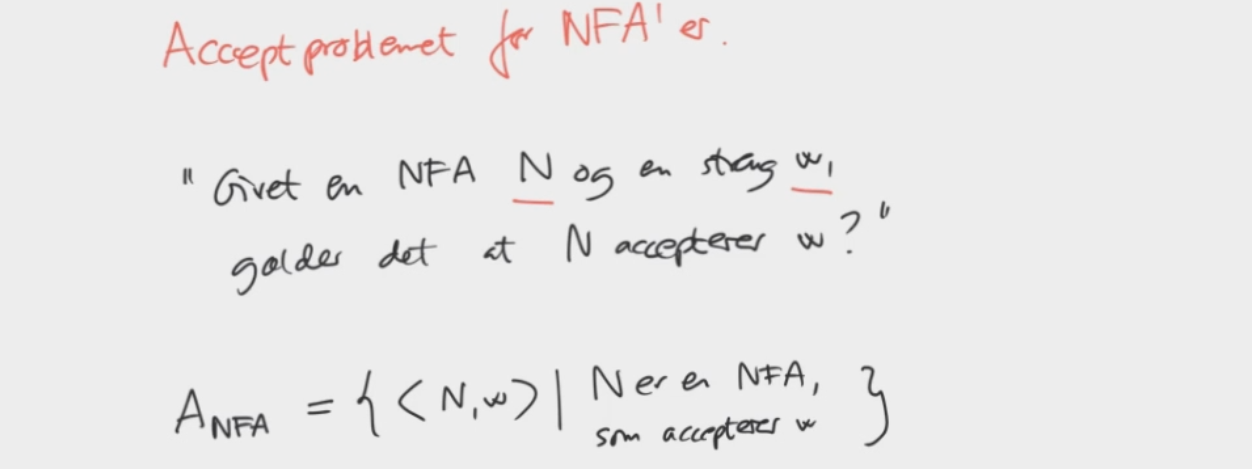 Acceptproblemet for NFA'er.
"Givet en NFA N og en streng w,
gælder det at N accepterer w?"
A_NFA = { <N,w> | N er en NFA,
som accepterer w }